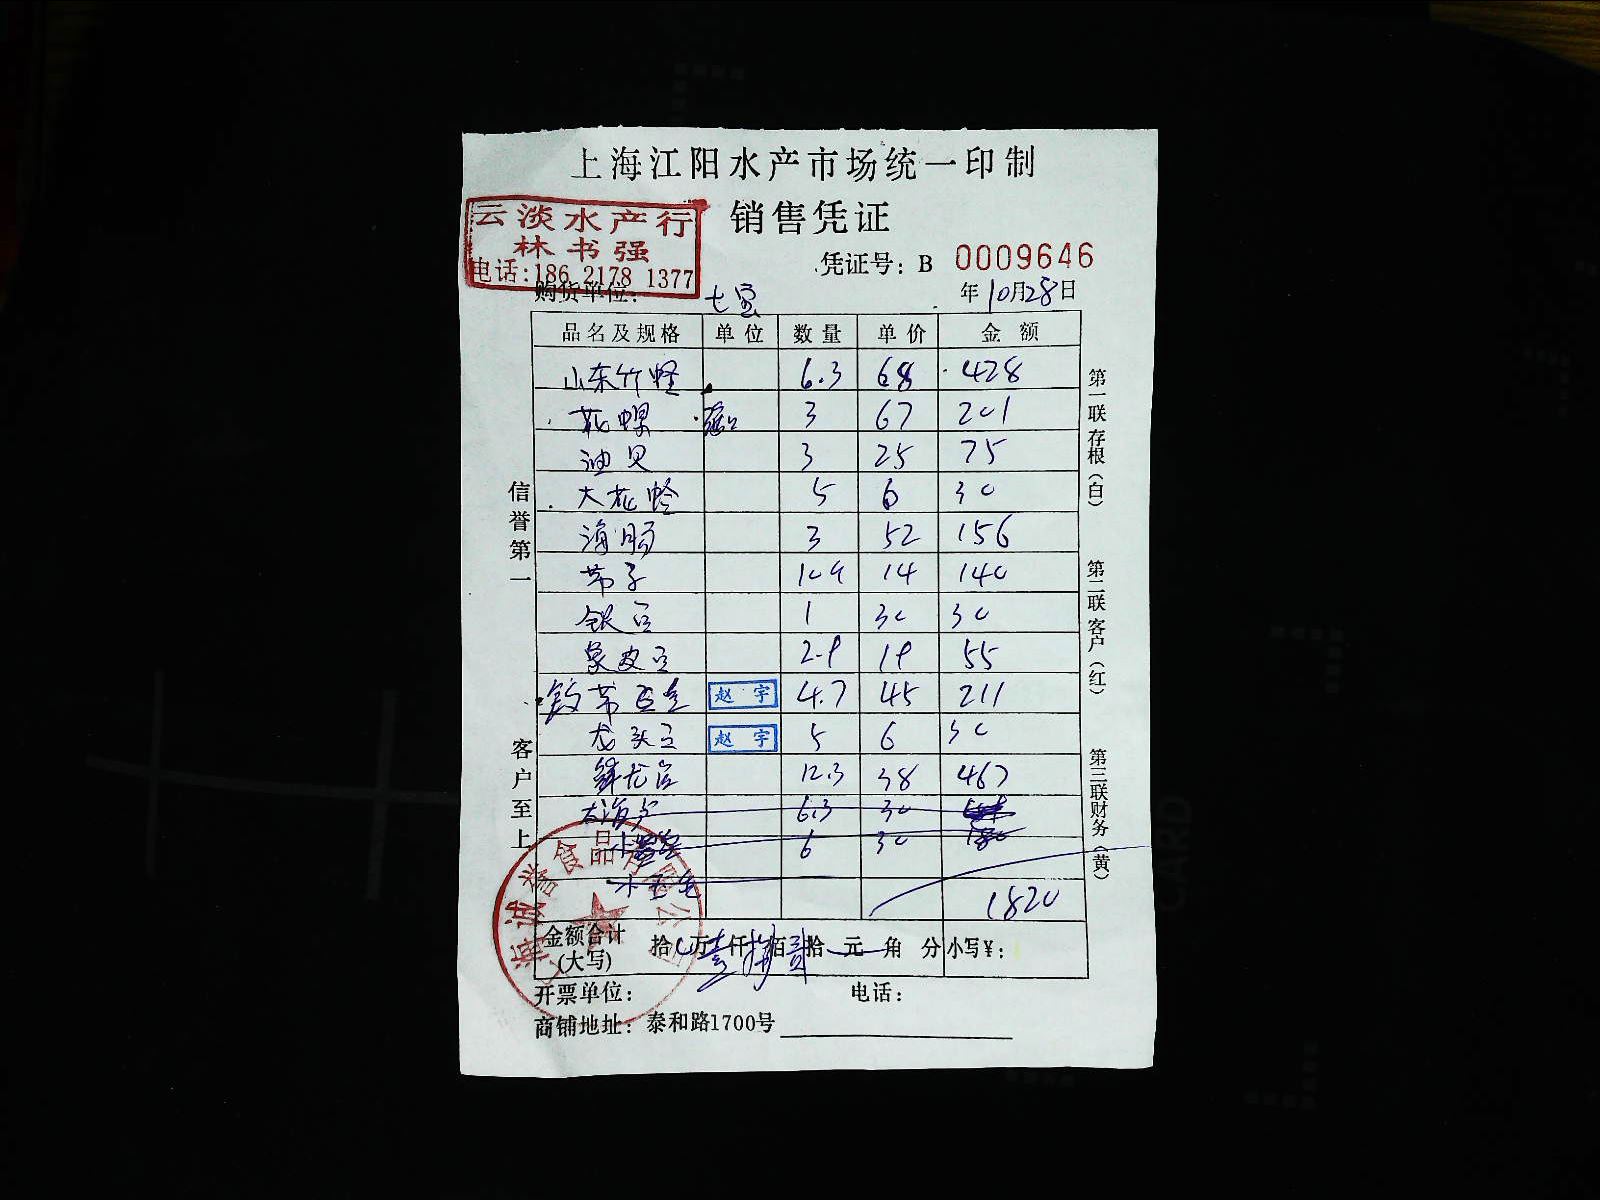 上海江阳水产市场统一印制
销售凭证
云淡水产行
林书强
电话:186 2178 1377
凭证号: B 0009646
购货单位: 七宝
年10月28日
品名及规格 单位 数量 单价 金额
山东竹蛏 6.3 68 428
花螺 3 67 201
油贝 3 25 75
大花蛤 5 6 30
海肠 3 52 156
带子 14 140
银豆 1 30 30
象皮豆 2.9 19 55
赵宇 4.7 45 211
龙头豆 赵宇 5 6 30
12.3 38 467
6.3 30
6 30 180
1820
金额合计(大写) 拾 万壹仟捌佰贰拾 元 角 分 小写¥:
开票单位: 电话:
商铺地址: 泰和路1700号
信誉第一
客户至上
第一联存根(白)
第二联客户(红)
第三联财务(黄)
海诚誉食品有限公司